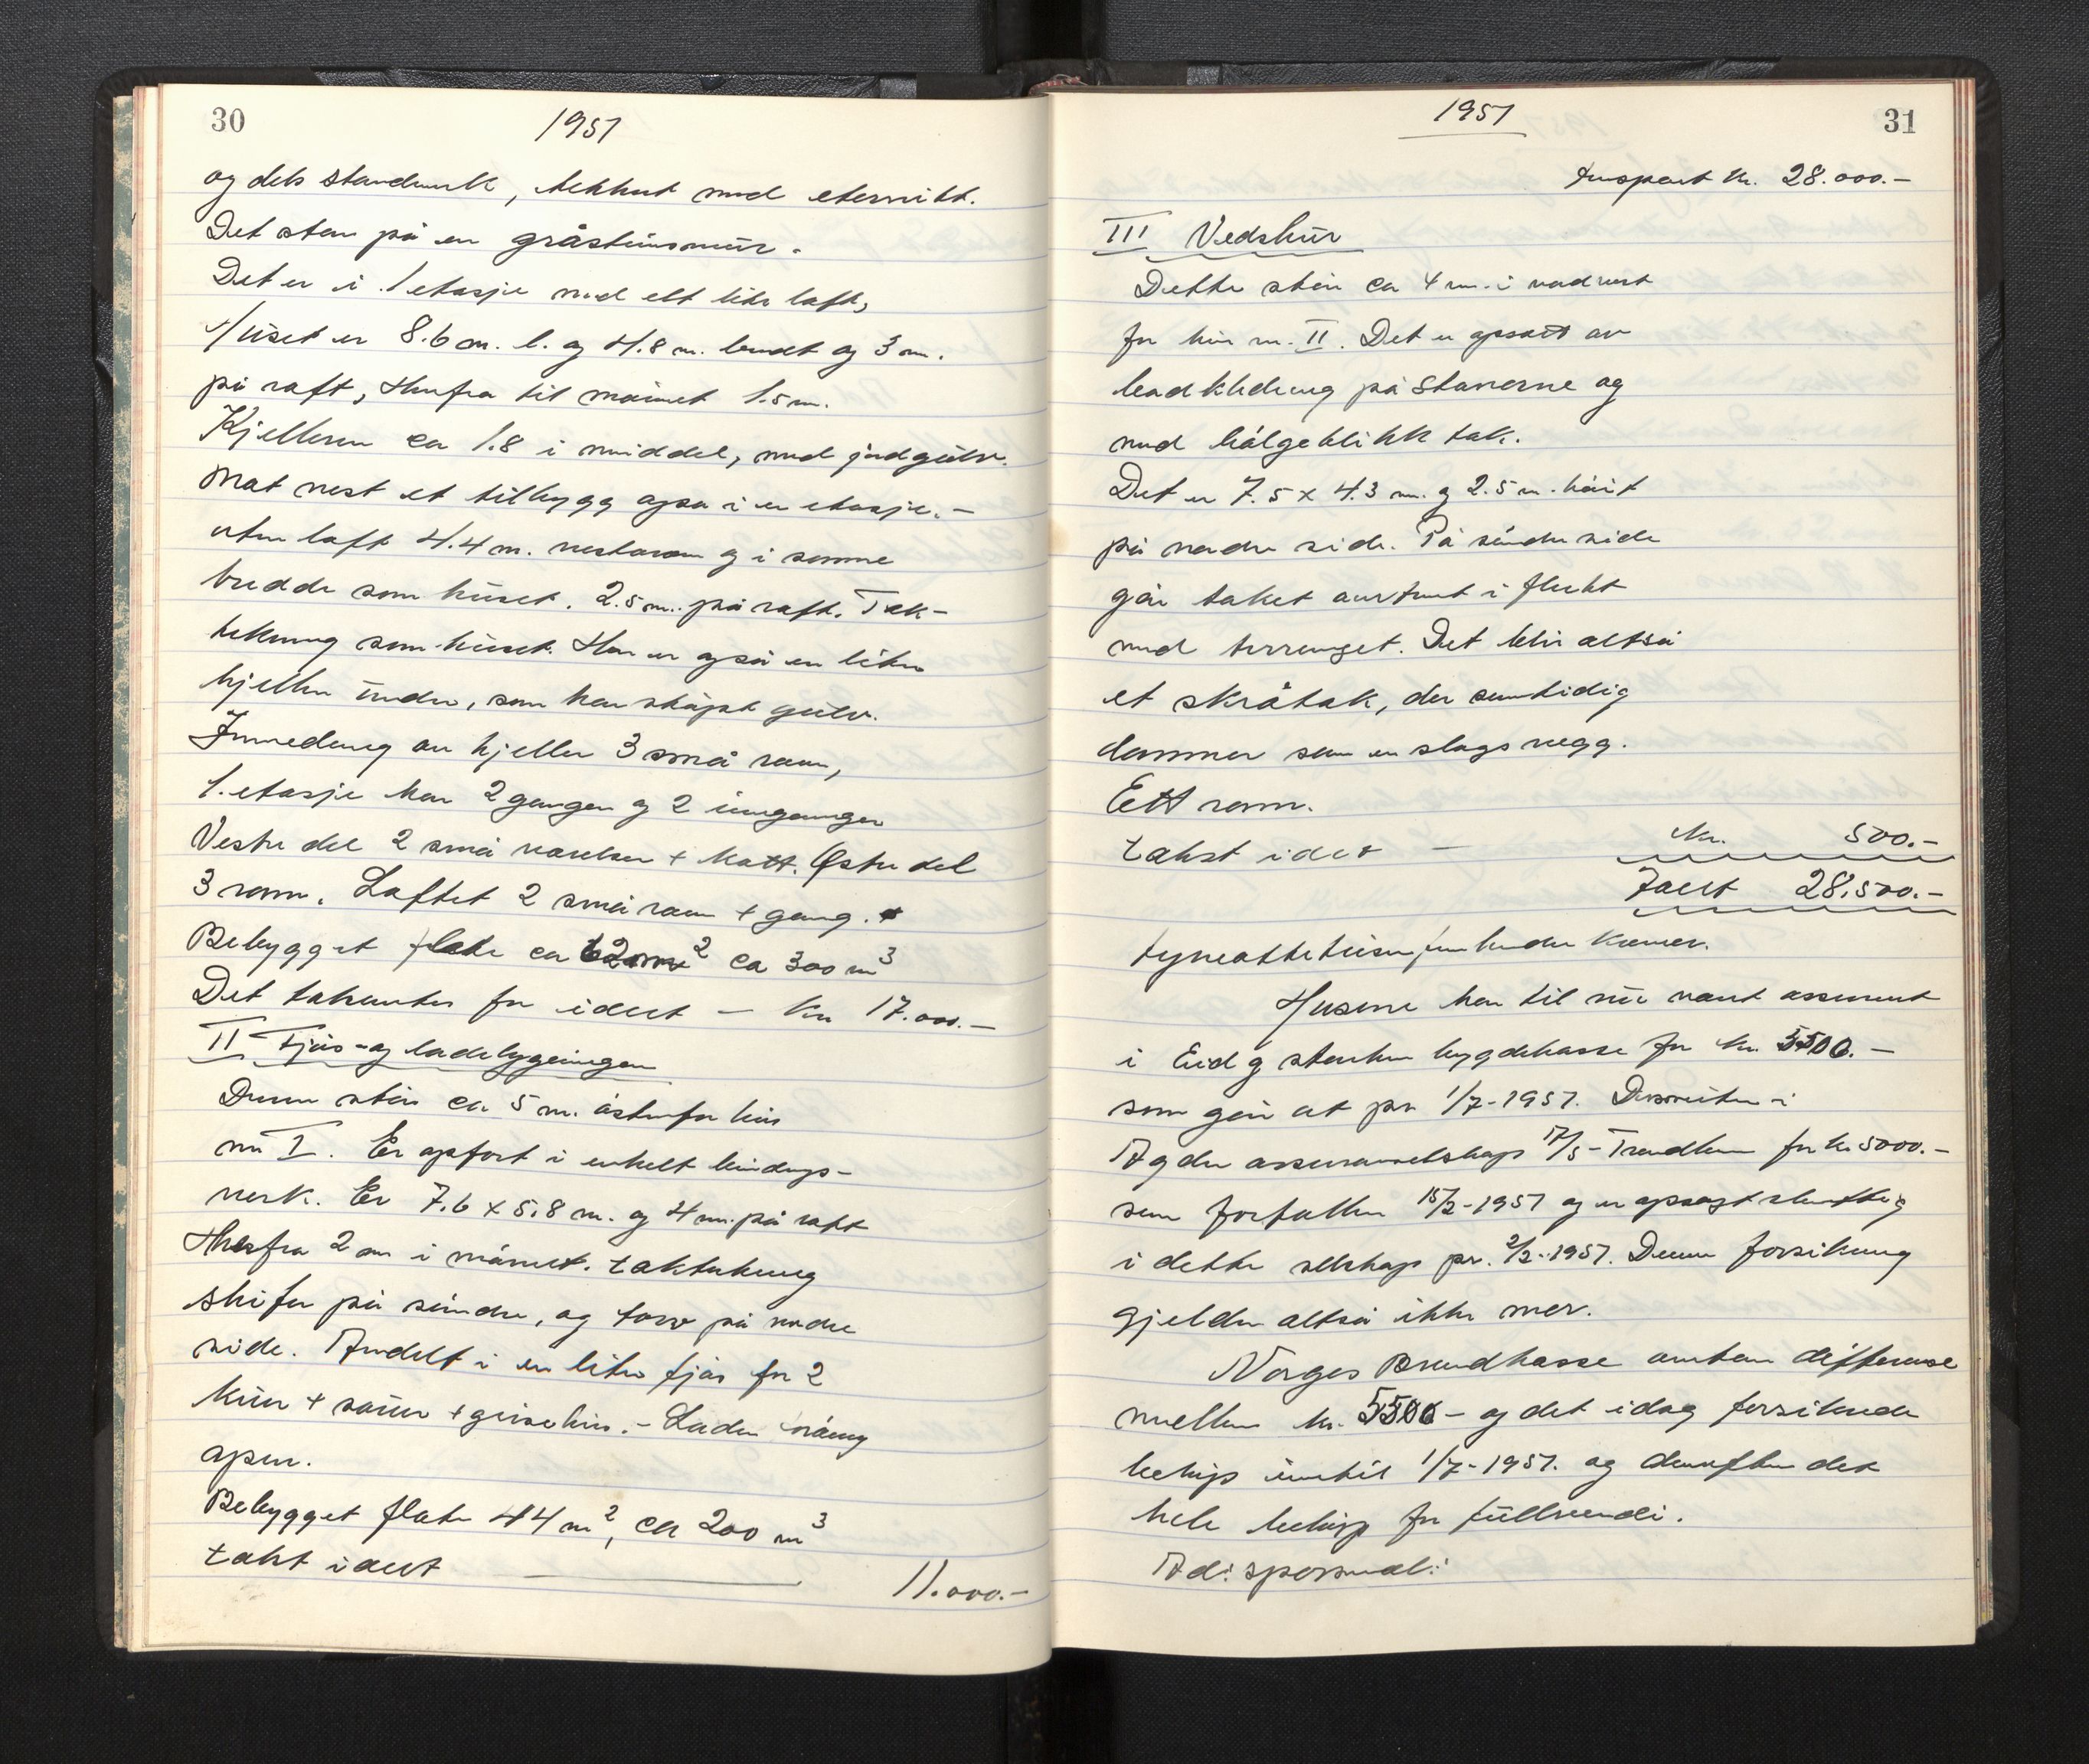 30
1951
og dels standverk, tekket med eternitt.
Det star på en gråsteinsmur.
Det er i 1 etasje med ett lite loft,
Huset er 8.6 m. l. og 4.8 m. bredt og 3 m.
på raft, Herfra til mønet 1.5 m.
Kjelleren ca 1.8 i middel, med jordgulv.
Mot vest et tilbygg også i en etasje. –
uten loft 4.4 m. vestover og i samme
bredde som huset. 2.5 m. på raft. Tak-
tekning som huset. Her er også en liten
kjeller under, som har støpt gulv.
Innredning av kjeller 3 små rom,
1. etasje har 2 ganger og 2 innganger
Vestre del 2 små værelser + kott. Østre del
3 rom. Loftet 2 små rom + gang.
Bebygget flate ca 62 m² ca 300 m³
Det taksertes for idert – kr 17.000.–
II Fjøs- og ladebygningen
Denne står ca 5 m. østenfor hus
nr I. Er opført i enkelt bindings-
verk. Er 7.6 x 5.8 m. og 4 m. på raft
Herfra 2 m i mønet. taktekning
skifer på søndre, og torv på nordre
side. Inndelt i en liten fjøs for 2
kuer + sauer + grisehus. – Laden
open.
Bebygget flate 44 m², ca 200 m³
takst idert — 11.000.–
1951
31
Transport kr. 28.000.–
III Vedskur
Dette står ca 4 m. i nordvest
for hus nr. II. Det er opsatt av
bordkledning på staverne og
med bølgeblikk tak.
Det er 7.5 x 4.3 m. og 2.5 m. høit
på nordre side. På søndre side
går taket nedover i flukt
med terrenget. Det blir altså
et skråtak, der samtidig
danner som en slags vegg.
Ett rom.
takst idert – kr. 500.–
Ialt 28.500.–
Husene har til nu vært assurert
i Eid og bygdekasse for kr. 5500.–
som går ut pr 1/7-1951. Dessuten i
Agder assuranselskap 17/5 – for kr 5000.–
som forfaller 15/2-1951 og er opsagt skriftlig
i dette selskap pr. 2/2-1951. Denne forsikring
gjelder altså ikke mer.
Norges Brandkasse overtar differanse
mellem kr. 5500 – og det idag forsikrede
beløp inntil 1/7-1951. og derefter det
hele beløp for fullverdi.
Ad: spørsmål: